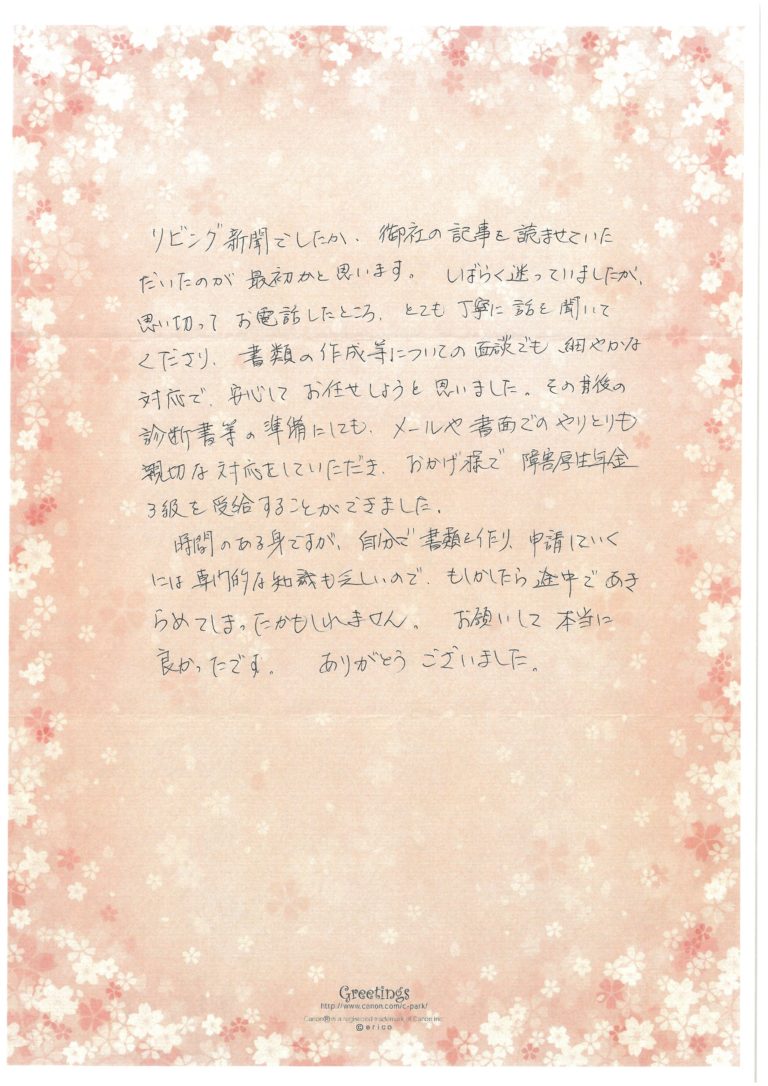 リビング新聞でしたか、御社の記事を読ませていた
だいたのが最初かと思います。 しばらく迷っていましたが、
思い切ってお電話したところ、とても丁寧に話を聞いて
くださり、書類の作成等についての面談でも、細やかな
対応で、安心してお任せしようと思いました。その後の
診断書等の準備にしても、メールや書面でのやりとりも
親切な対応をしていただき、おかげ様で障害厚生年金
3級を受給することができました。
時間のある身ですが、自分で書類を作り、申請していく
には専門的な知識も乏しいので、もしかしたら途中であき
らめてしまったかもしれません。 お願いして本当に
良かったです。 ありがとうございました。
Greetings
http://www.canon.com/c-park/
Canon®is a registered trademark of Canon Inc.
©erico